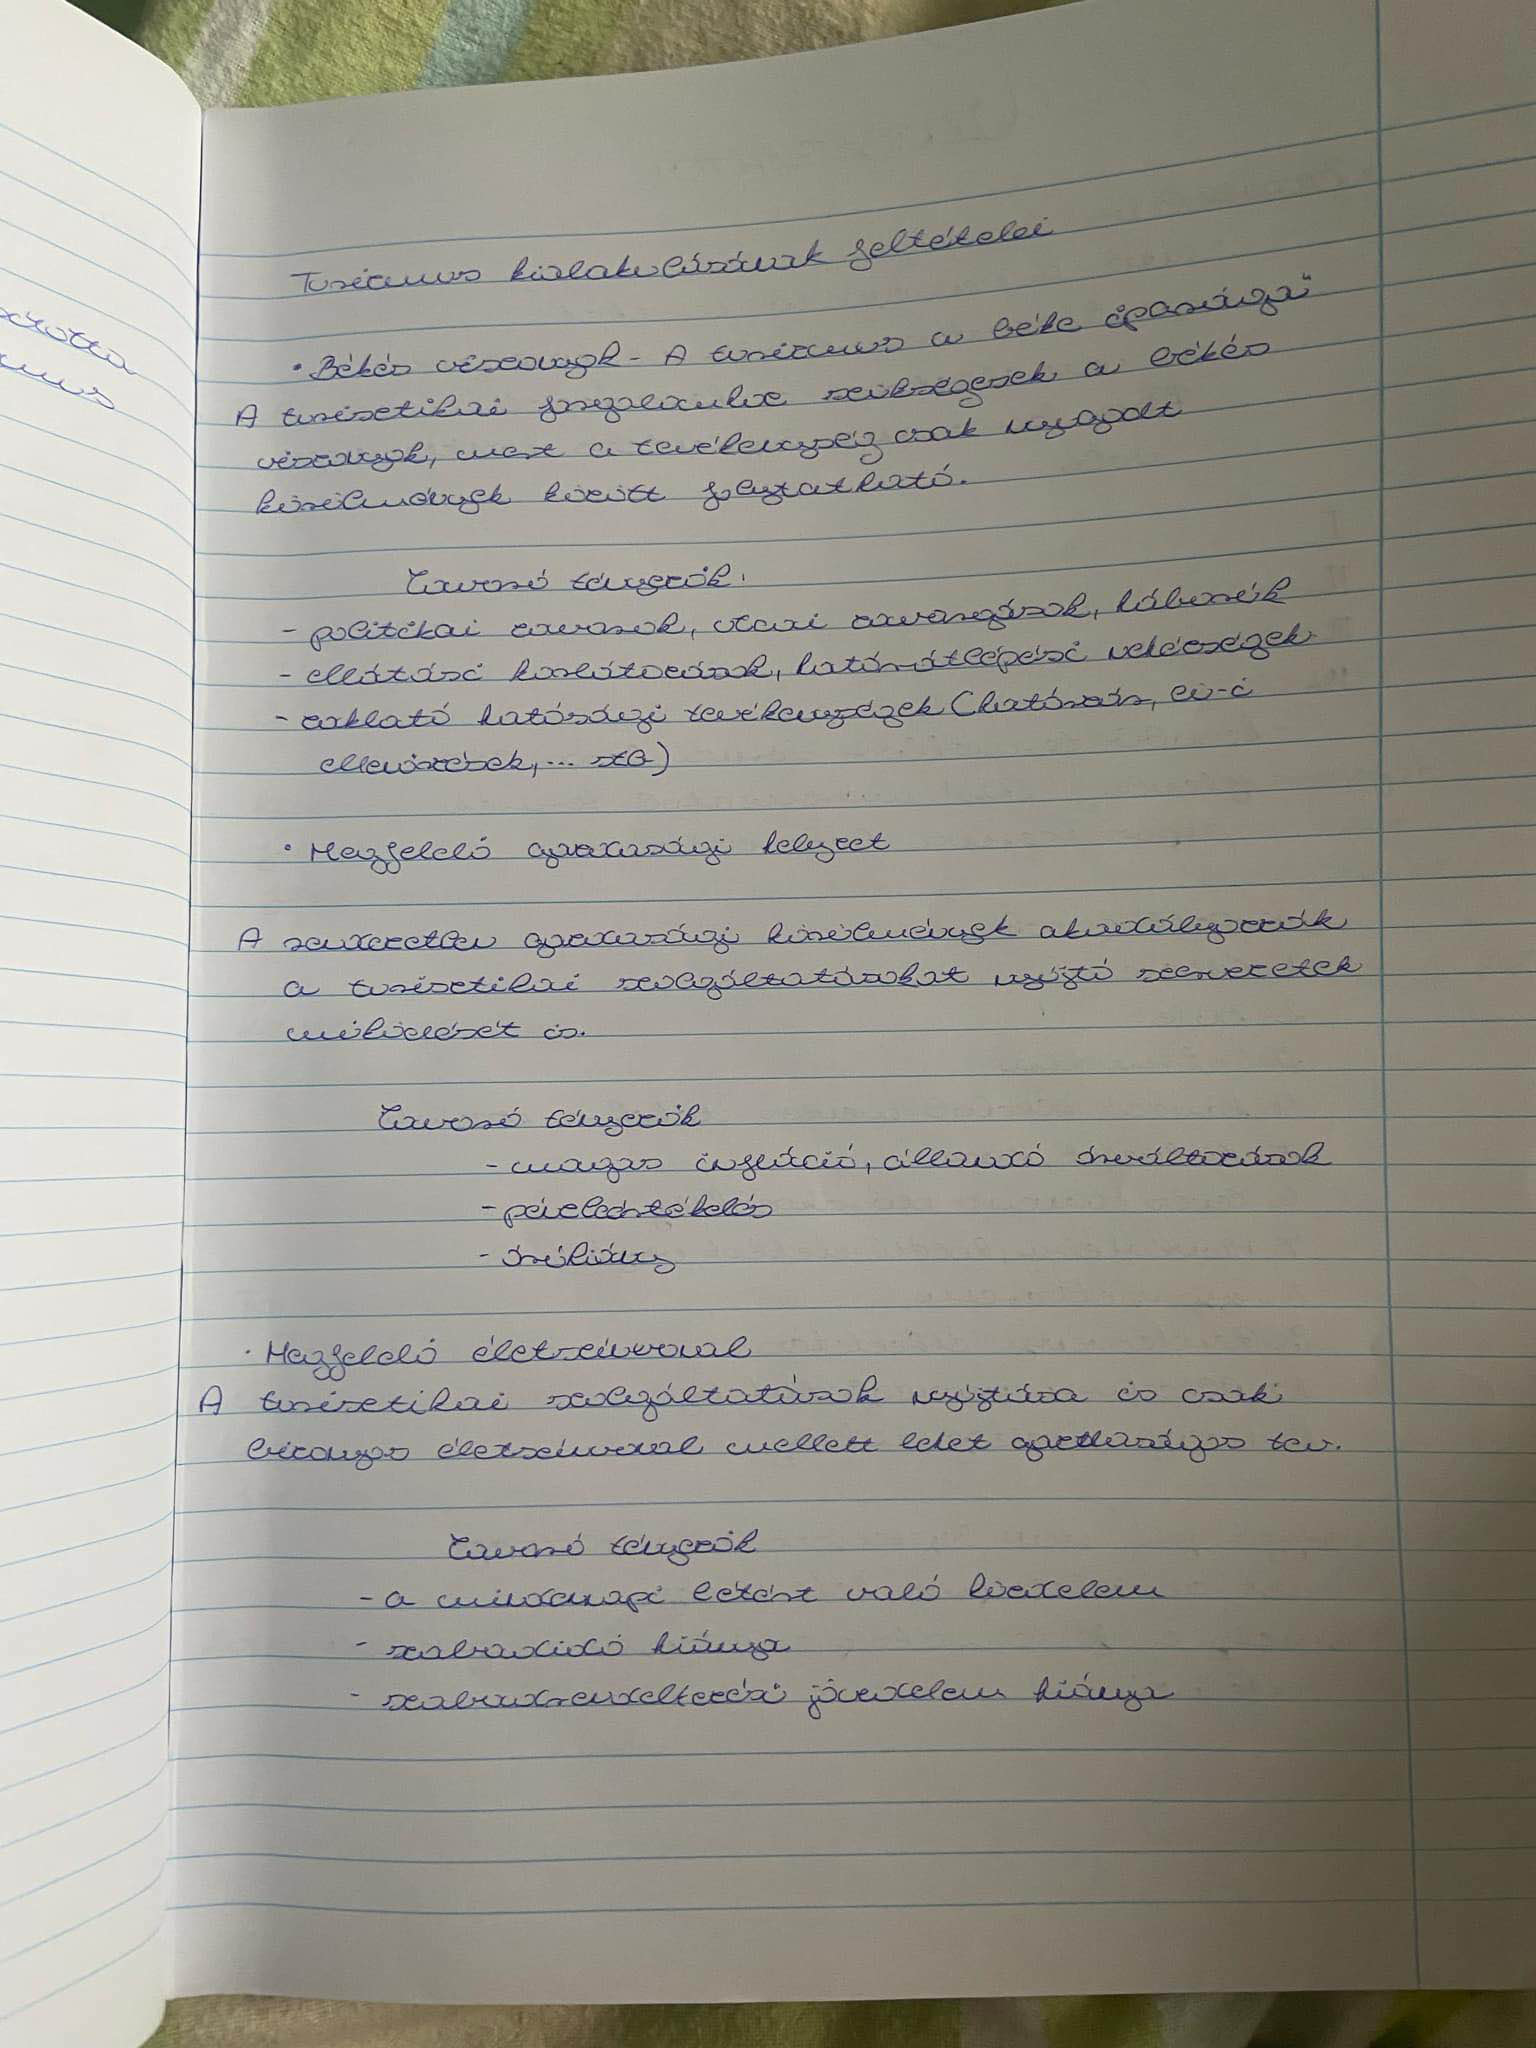 Turizmus kialakulásának feltételei
• Békés viszonyok - A turizmus a béke iparága"
A turisztikai forgalomhoz szükségesek a békés
viszonyok, mert a tevékenység csak nyugodt
körülmények között folytatható.
Zavaró tényezők:
- politikai zavarok, utcai zavargások, háborúk
- ellátási korlátozások, határátlépési nehézségek
- zaklató hatósági tevékenységek (határzár, eü-i
ellenőrzések, ... stb)
• Megfelelő gazdasági helyzet
A rendezetlen gazdasági körülmények akadályozzák
a turisztikai szolgáltatásokat nyújtó szervezetek
működését is.
Zavaró tényezők
- magas infláció, állandó árváltozások
- pénzleértékelés
- áruhiány
• Megfelelő életszínvonal
A turisztikai szolgáltatások nyújtása is csak
bizonyos életszínvonal mellett lehet gazdaságos tev.
Zavaró tényezők
- a mindennapi létért való küzdelem
- szabadidő hiánya
- szabadrendelkezésű jövedelem hiánya